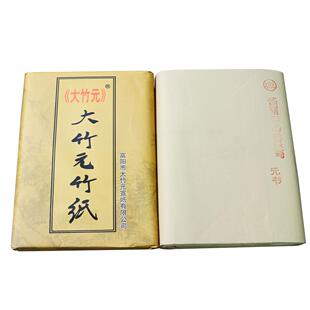 《大竹元》®
大竹元竹纸
富阳市大竹元宣纸有限公司
元书